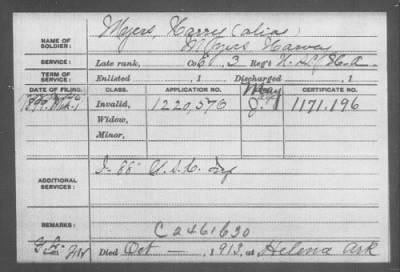 NAME OF SOLDIER: Myers, Harry (alias)
Myers, Harvey
SERVICE: Late rank, Co. E, 3 Reg't U.S.C. H.A.
TERM OF SERVICE: Enlisted , 1 Discharged , 1
DATE OF FILING. CLASS. APPLICATION NO. CERTIFICATE NO.
Invalid, 1220,570 1171.196
Widow,
Minor,
ADDITIONAL SERVICES: I-88" U.S.C. Inf
REMARKS: C2461630
Died Oct — , 1913, at Helena Ark